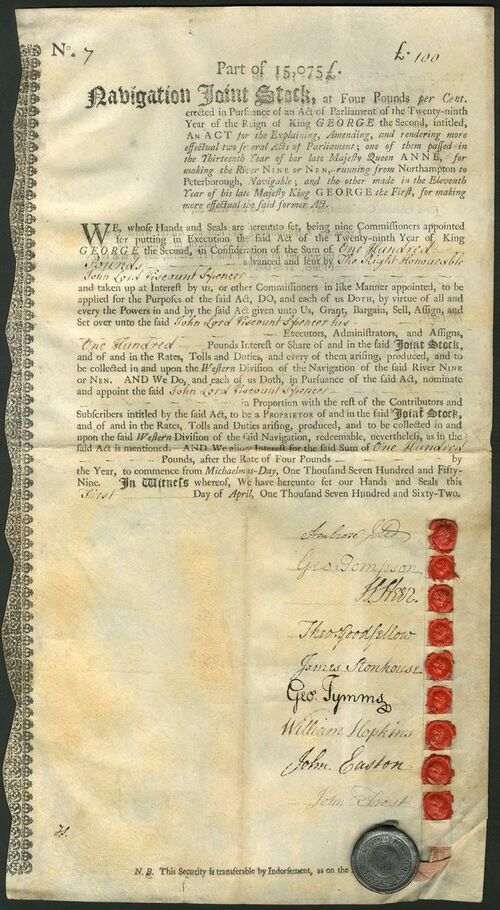 No. 7
£. 100
Part of 15,075£.
Navigation Joint Stock, at Four Pounds per Cent.
erected in Pursuance of an Act of Parliament of the Twenty-ninth
Year of the Reign of King GEORGE the Second, intitled,
An ACT for the Explaining, Amending, and rendering more
effectual two several Acts of Parliament; one of them passed in
the Thirteenth Year of her late Majesty Queen ANNE, for
making the River NINE or NEN, running from Northampton to
Peterborough, Navigable; and the other made in the Eleventh
Year of his late Majesty King GEORGE the First, for making
more effectual the said former Act.
WE, whose Hands and Seals are hereunto set, being nine Commissioners appointed
for putting in Execution the said Act of the Twenty-ninth Year of King
GEORGE the Second, in Consideration of the Sum of One Hundred
Pounds advanced and lent by The Right Honourable
John Lord Viscount Spencer
and taken up at Interest by us, or other Commissioners in like Manner appointed, to be
applied for the Purposes of the said Act, DO, and each of us DOTH, by virtue of all and
every the Powers in and by the said Act given unto Us, Grant, Bargain, Sell, Assign, and
Set over unto the said John Lord Viscount Spencer his
Executors, Administrators, and Assigns,
One Hundred Pounds Interest or Share of and in the said Joint Stock,
and of and in the Rates, Tolls and Duties, and every of them arising, produced, and to
be collected in and upon the Western Division of the Navigation of the said River NINE
or NEN. AND We Do, and each of us Doth, in Pursuance of the said Act, nominate
and appoint the said John Lord Viscount Spencer
in Proportion with the rest of the Contributors and
Subscribers intitled by the said Act, to be a PROPRIETOR of and in the said Joint Stock,
and of and in the Rates, Tolls and Duties arising, produced, and to be collected in and
upon the said Western Division of the said Navigation, redeemable, nevertheless, as in the
said Act is mentioned. AND We allow Interest for the said Sum of One Hundred
Pounds, after the Rate of Four Pounds by
the Year, to commence from Michaelmas-Day, One Thousand Seven Hundred and Fifty-
Nine. In Witness whereof, We have hereunto set our Hands and Seals this
First Day of April, One Thousand Seven Hundred and Sixty-Two.
Ambrose
Geo. Tompson
Theo. Goodfellow
James Stonhouse
Geo. Tymms
William Hopkins
John Easton
John
N. B. This Security is transferable by Indorsement, as on the